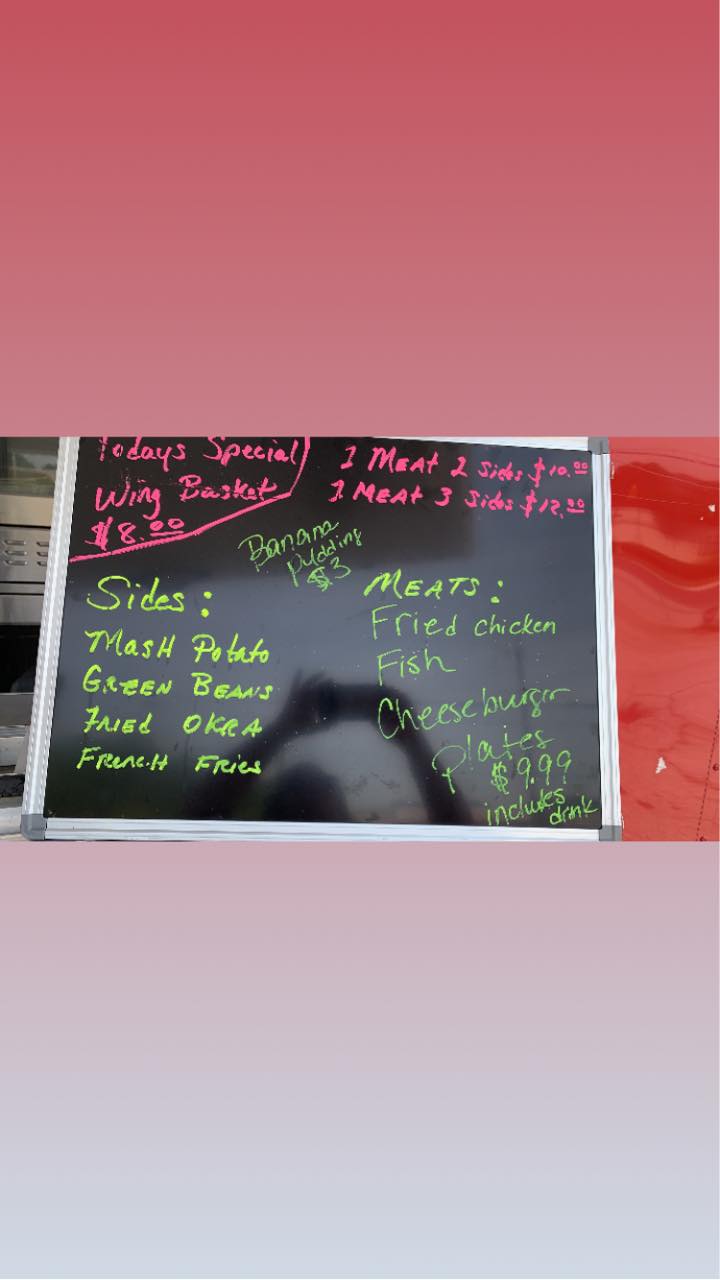 Todays Special
Wing Basket
$8.00
1 MEAT 2 Sides $10.00
1 MEAT 3 Sides $12.00
Banana
Pudding
$3
Sides:
MASH POTATO
GREEN BEANS
FRIED OKRA
FRENCH FRIES
MEATS:
Fried chicken
Fish
Cheeseburger
Plates
$9.99
includes
drink